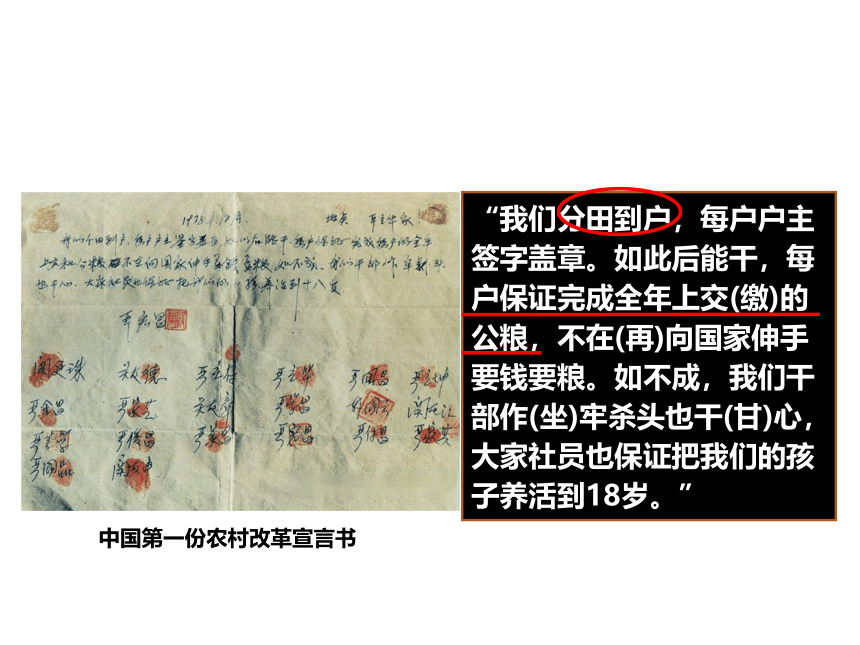 1978.12月. 地点 严立华家
我们分田到户,每户户主签字盖章,如以后能干,每户保证完成每户的全年
上交和公粮不在向国家伸手要钱要粮,如不成,我们干部作牢杀头
也干心,大家社员也保证把我们的小孩养活到十八岁.
严宏昌
关友德 严立华 严国昌 严立坤
严金昌 严家芝 严学昌 关友江
严俊昌 严家其
严国品
“我们分田到户,每户户主
签字盖章。如此后能干,每
户保证完成全年上交(缴)的
公粮,不在(再)向国家伸手
要钱要粮。如不成,我们干
部作(坐)牢杀头也干(甘)心,
大家社员也保证把我们的孩
子养活到18岁。”
中国第一份农村改革宣言书